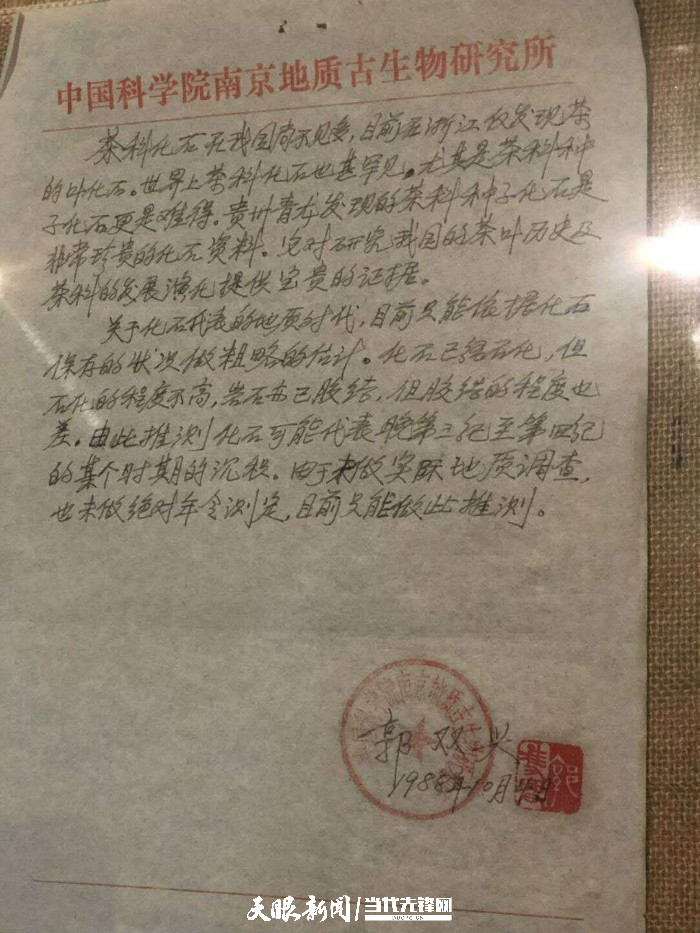 中国科学院南京地质古生物研究所
茶科化石在我国尚不见多,目前在浙江仅发现茶
的叶化石。世界上茶科化石也甚罕见。尤其是茶科种
子化石更是难得。贵州晴龙发现的茶科种子化石是
非常珍贵的化石资料。它对研究我国的茶叶历史及
茶科的发展演化提供宝贵的证据。
关于化石代表的地质时代,目前只能依据化石
保存的状况做粗略的估计。化石已经石化,但
石化的程度不高,岩石亦已胶结,但胶结的程度也
差。由此推测化石可能代表晚第三纪至第四纪
的某个时期的沉积。由于未做实际地质调查,
也未做绝对年令测定,目前只能做此推测。
科学院南京地质古生物
郭双兴
1988年10月
天眼新闻 当代先锋网
DDCPC.CN